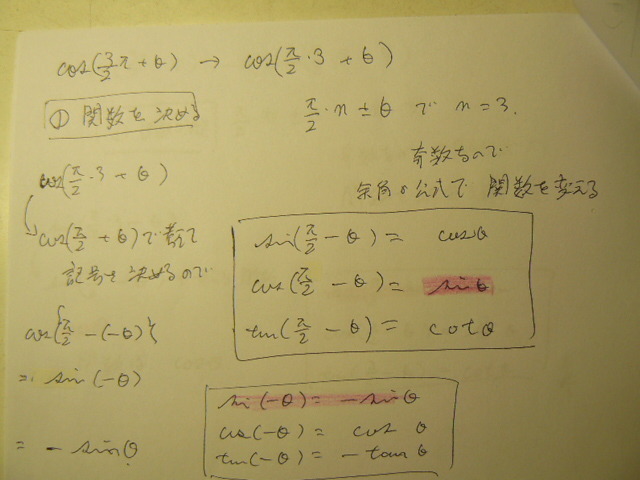 cos(3/2 π + θ) → cos(π/2・3 + θ)
① 関数を決める
π/2・n ± θ で n = 3.
奇数なので
余角の公式で 関数を変える
cos(π/2・3 + θ)
cos(π/2 + θ)で考えて
記号を決めるので
cos{π/2 - (-θ)}
= sin(-θ)
= - sinθ
sin(π/2 - θ) = cosθ
cos(π/2 - θ) = sinθ
tan(π/2 - θ) = cotθ
sin(-θ) = -sinθ
cos(-θ) = cos θ
tan(-θ) = -tanθ